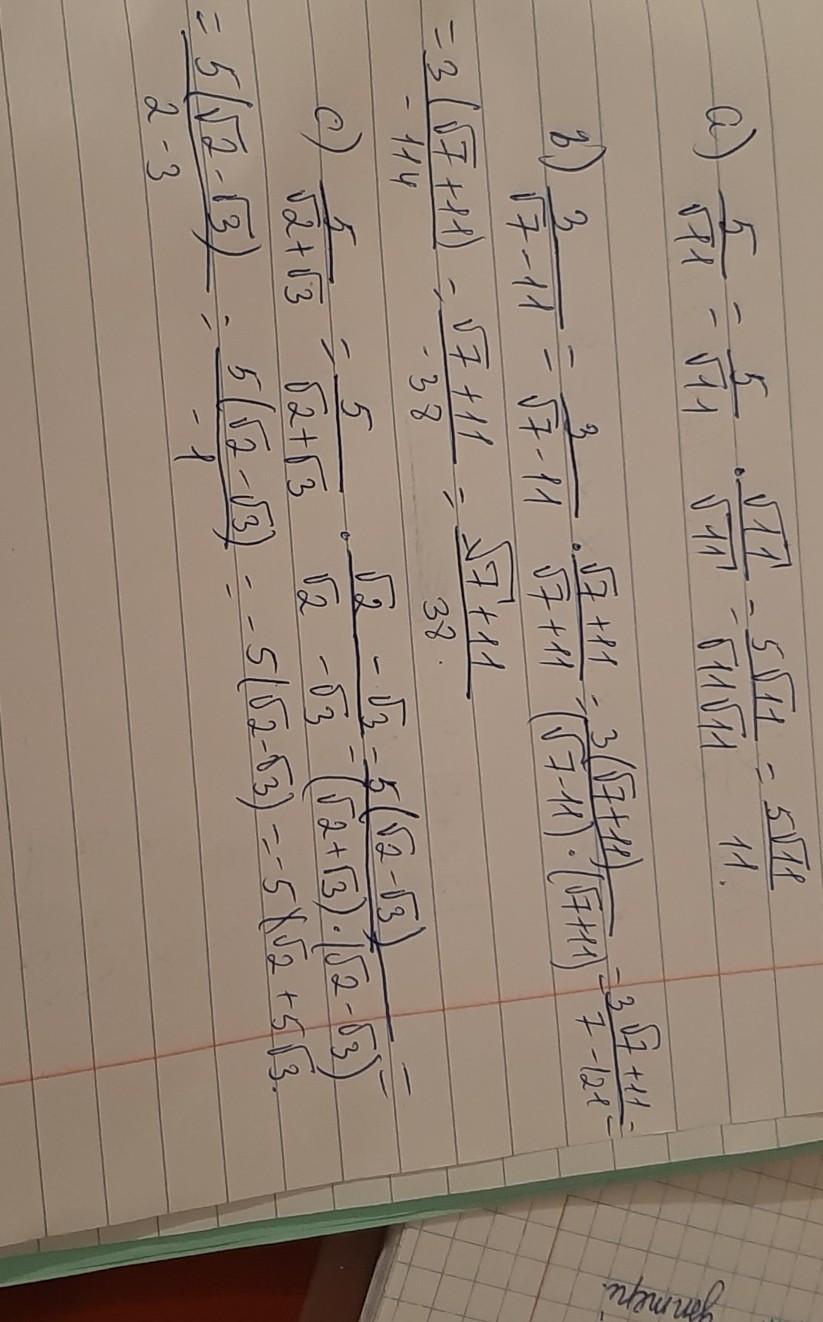 a) 5/√11 = 5/√11 · √11/√11 = 5√11/√11√11 = 5√11/11.
b) 3/√7-11 = 3/√7-11 · √7+11/√7+11 = 3(√7+11)/(√7-11)·(√7+11) = 3√7+11/7-121 =
= 3(√7+11)/-114 = √7+11/-38 = √7+11/38.
c) 5/√2+√3 = 5/√2+√3 · √2-√3/√2-√3 = 5(√2-√3)/(√2+√3)·(√2-√3) =
= 5(√2-√3)/2-3 = 5(√2-√3)/-1 = -5(√2-√3) = -5√2+5√3.